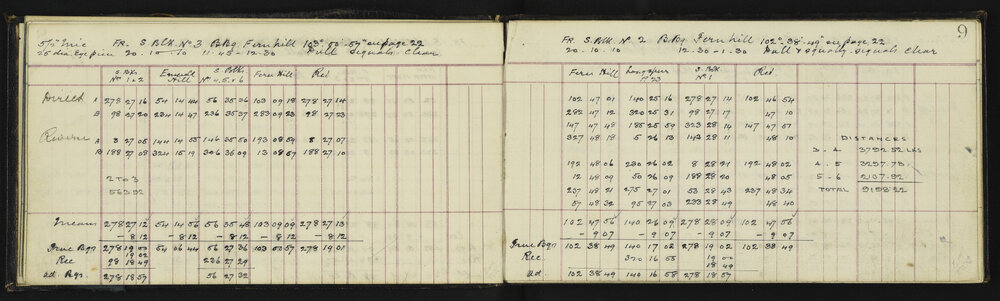 5½" Mic FR. S. Blk. No 3 B.Bg. Fernhill 103° 00' 57" on page 22
25 dia. Eye piece 20-10-10 11.45-12.30 Dull Signals Clear
S. Blks No 1 & 2 Emerald Hill S Blks No 4, 5 & 6 Fern Hill Red
Direct A 278 27 16 54 14 44 56 35 36 103 09 18 278 27 14
B 98 27 20 234 14 47 236 35 37 283 09 23 98 27 23
Reverse A 8 27 05 144 14 55 146 35 50 193 08 59 8 27 07
B 188 27 08 324 15 19 306 36 09 13 08 57 188 27 10
2 to 3
563.92
Mean 278 27 12 54 14 56 56 35 48 103 09 09 278 27 13
- 8 12 - 8 12 - 8 12 - 8 12 - 8 12
True Bgs 278 19 00 54 06 44 56 27 36 103 00 57 278 19 01
19 02
Rec 98 18 49 236 27 29
Ad. Bgs. 278 18 57 56 27 32
9
FR. S. Blk No 2 B.Bg Fernhill 102° 38' 49" on page 22
20.10.10 12.30-1.30 Dull & squally. Signals Clear
Fern Hill Langspur P 23 S. Blk No 1 Red
102 47 01 140 25 16 278 27 14 102 46 54
282 47 12 320 25 31 98 27 17 47 10
147 47 48 185 25 59 323 28 14 147 47 57
327 48 18 5 26 13 143 28 11 48 10
DISTANCES
3 - 4 3792.52 LKS
192 48 06 230 26 02 8 28 21 192 48 02
4 - 5 3297.78
12 48 09 50 26 09 188 28 20 48 05
5 - 6 2107.92
237 48 21 275 27 01 53 28 43 237 48 34
TOTAL 9198.22
57 48 32 95 27 03 233 28 49 48 40
102 47 56 140 26 09 278 28 09 102 47 56
- 9 07 - 9 07 - 9 07 - 9 07
True Bgs 102 38 49 140 17 02 278 19 02 102 38 49
Rec. 320 16 55 19 00
18 49
ad. 102 38 49 140 16 58 278 18 57